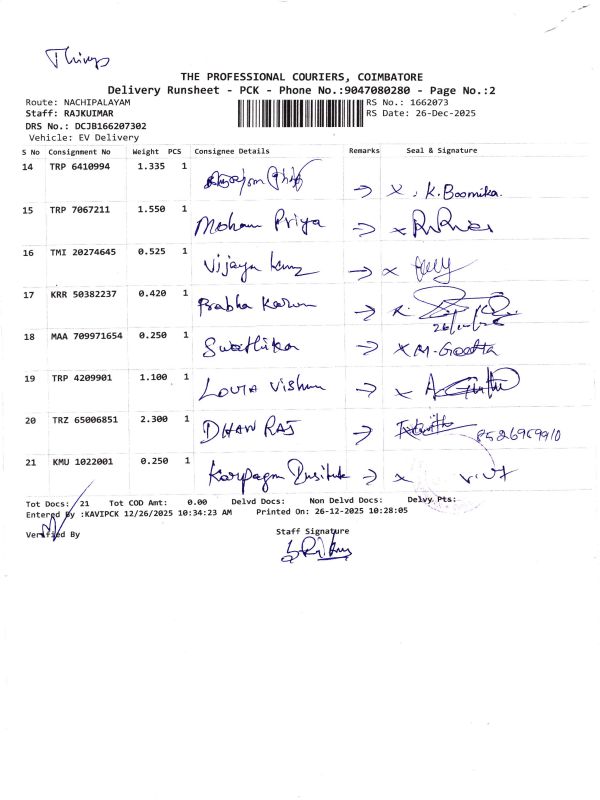 THE PROFESSIONAL COURIERS, COIMBATORE
Delivery Runsheet - PCK - Phone No.:9047080280 - Page No.:2
Route: NACHIPALAYAM RS No.: 1662073
Staff: RAJKUIMAR RS Date: 26-Dec-2025
DRS No.: DCJB166207302
Vehicle: EV Delivery
S No Consignment No Weight PCS Consignee Details Remarks Seal & Signature
14 TRP 6410994 1.335 1 → x . K. Boomika.
15 TRP 7067211 1.550 1 Mohana Priya → x
16 TMI 20274645 0.525 1 Vijaya → x
17 KRR 50382237 0.420 1 Prabha Karan →
18 MAA 709971654 0.250 1 Swathika → x M. Geetha
19 TRP 4209901 1.100 1 Vishnu → x
20 TRZ 65006851 2.300 1 DHAN RAJ → 8526969910
21 KMU 1022001 0.250 1 Karpagam → x
Tot Docs: 21 Tot COD Amt: 0.00 Delvd Docs: Non Delvd Docs: Delvy Pts:
Entered By :KAVIPCK 12/26/2025 10:34:23 AM Printed On: 26-12-2025 10:28:05
Verified By Staff Signature